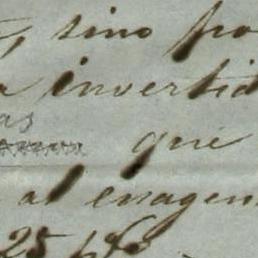 , sino po
a invertid
as
que
al enagen
25 p%